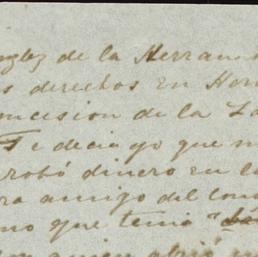 de la Herran
s derechos en Hon
ncesion de la La
Te decia yo que n
robó dinero en la
ra amigo del con
no que tenia